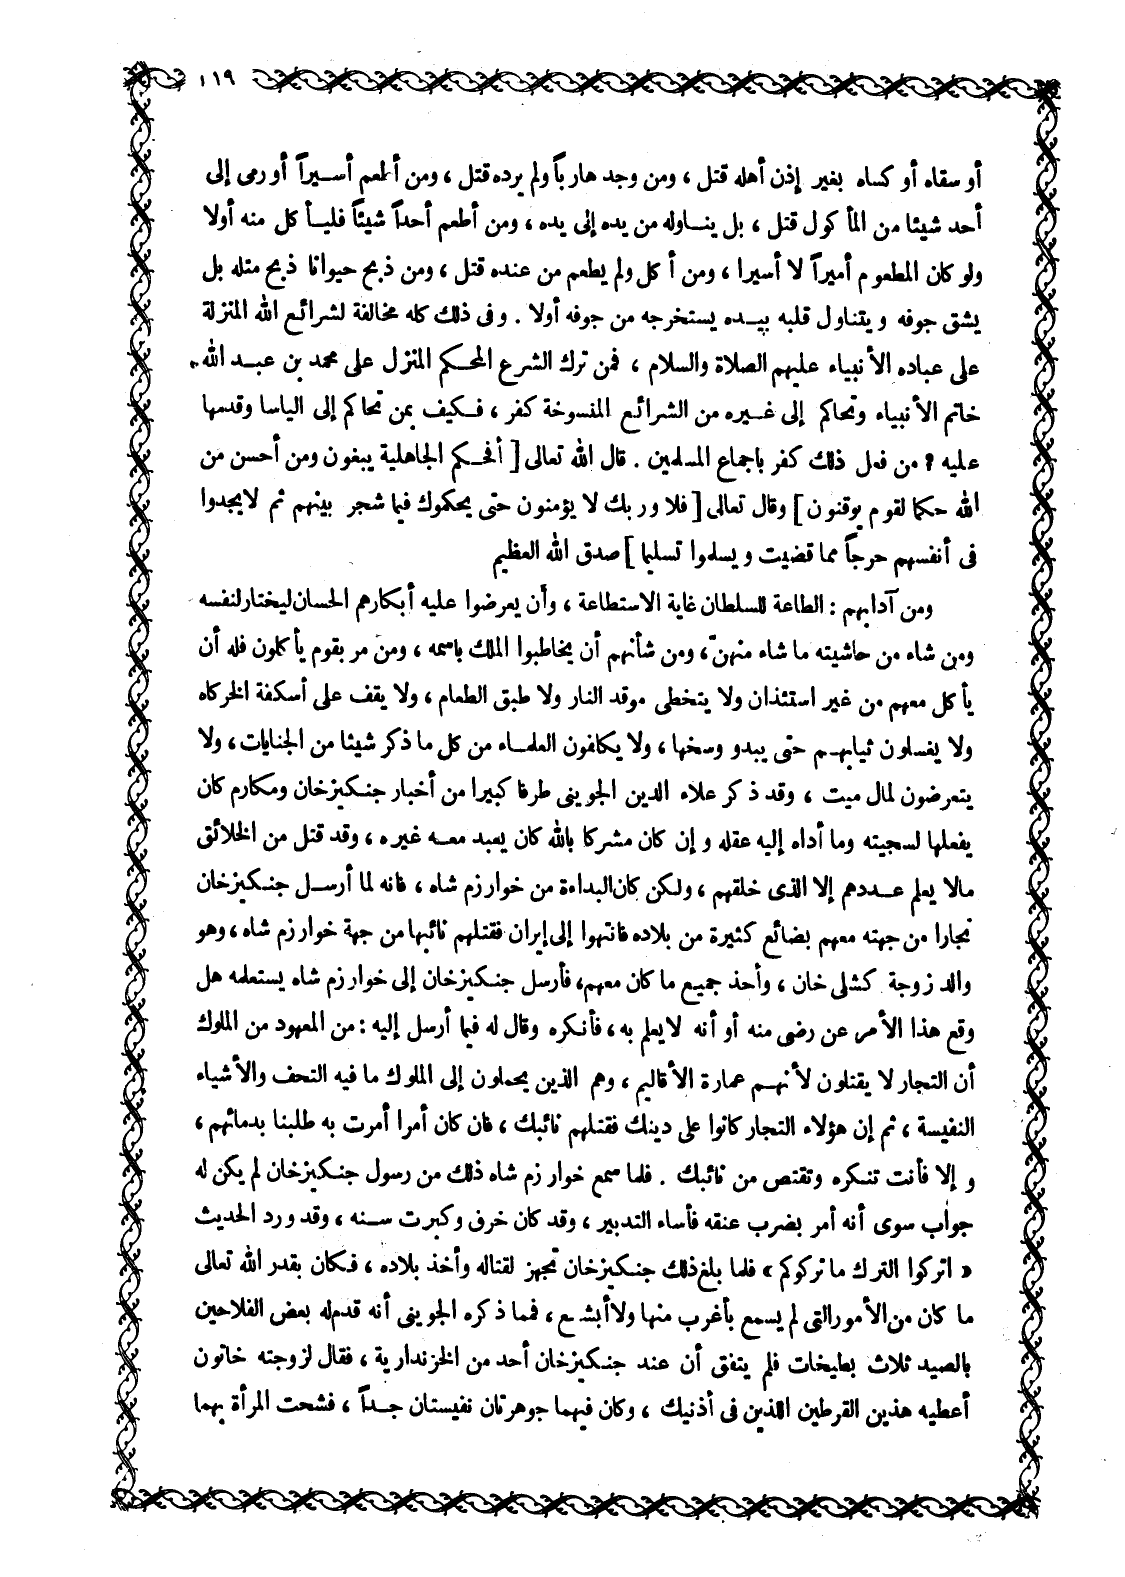 ١١٩
أو سقاه أو كساه بغير إذن أهله قتل ، ومن وجد هارباً ولم يرده قتل ، ومن أطعم أسيراً أو رمى إلى
أحد شيئا من المأكول قتل ، بل يناوله من يده إلى يده ، ومن أطعم أحداً شيئاً فليأكل منه أولا
ولو كان المطعوم أميراً لا أسيرا ، ومن أكل ولم يطعم من عنده قتل ، ومن ذبح حيوانا ذبح مثله بل
يشق جوفه ويتناول قلبه بيده يستخرجه من جوفه أولا . وفى ذلك كله مخالفة لشرائع الله المنزلة
على عباده الأنبياء عليهم الصلاة والسلام ، فمن ترك الشرع المحكم المنزل على محمد بن عبد الله
خاتم الأنبياء وتحاكم إلى غيره من الشرائع المنسوخة كفر ، فكيف بمن تحاكم إلى الياسا وقدمها
عليه ؟ من فعل ذلك كفر باجماع المسلمين . قال الله تعالى [ أفحكم الجاهلية يبغون ومن أحسن من
الله حكما لقوم يوقنون ] وقال تعالى [ فلا وربك لا يؤمنون حتى يحكموك فيما شجر بينهم ثم لايجدوا
فى أنفسهم حرجاً مما قضيت ويسلموا تسليما ] صدق الله العظيم
ومن آدابهم : الطاعة للسلطان غاية الاستطاعة ، وأن يعرضوا عليه أبكارهم الحسان ليختار لنفسه
ومن شاء من حاشيته ما شاء منهنّ ، ومن شأنهم أن يخاطبوا الملك باسمه ، ومن مر بقوم يأكلون فله أن
يأكل معهم من غير استئذان ولا يتخطى موقد النار ولا طبق الطعام ، ولا يقف على أسكفة الخركاه
ولا يغسلون ثيابهم حتى يبدو وسخها ، ولا يكلفون العلماء من كل ما ذكر شيئا من الجنايات ، ولا
يتعرضون لمال ميت ، وقد ذكر علاء الدين الجوينى طرفا كبيرا من أخبار جنكيزخان ومكارم كان
يفعلها لسجيته وما أداه إليه عقله وإن كان مشركا بالله كان يعبد معه غيره ، وقد قتل من الخلائق
مالا يعلم عددهم إلا الذى خلقهم ، ولكن كان البداءة من خوارزم شاه ، فانه لما أرسل جنكيزخان
تجارا من جهته معهم بضائع كثيرة من بلاده فانتهوا إلى إيران فقتلهم نائبها من جهة خوارزم شاه ، وهو
والد زوجة كشلى خان ، وأخذ جميع ما كان معهم، فأرسل جنكيزخان إلى خوارزم شاه يستعلمه هل
وقع هذا الأمر عن رضى منه أو أنه لايعلم به ، فأنكره وقال له فيما أرسل إليه : من المعهود من الملوك
أن التجار لا يقتلون لأنهم عمارة الأقاليم ، وهم الذين يحملون إلى الملوك ما فيه التحف والأشياء
النفيسة ، ثم إن هؤلاء التجار كانوا على دينك فقتلهم نائبك ، فان كان أمرا أمرت به طلبنا بدمائهم ،
وإلا فأنت تنكره وتقتص من نائبك . فلما سمع خوارزم شاه ذلك من رسول جنكيزخان لم يكن له
جواب سوى أنه أمر بضرب عنقه فأساء التدبير ، وقد كان خرف وكبرت سنه ، وقد ورد الحديث
« اتركوا الترك ما تركوكم » فلما بلغ ذلك جنكيزخان تجهز لقتاله وأخذ بلاده ، فكان بقدر الله تعالى
ما كان من الأمور التى لم يسمع بأغرب منها ولا أبشع ، فمما ذكره الجوينى أنه قدم له بعض الفلاحين
بالصيد ثلاث بطيخات فلم يتفق أن عند جنكيزخان أحد من الخزندارية ، فقال لزوجته خاتون
أعطيه هذين القرطين اللذين فى أذنيك ، وكان فيهما جوهرتان نفيستان جداً ، فشحت المرأة بهما